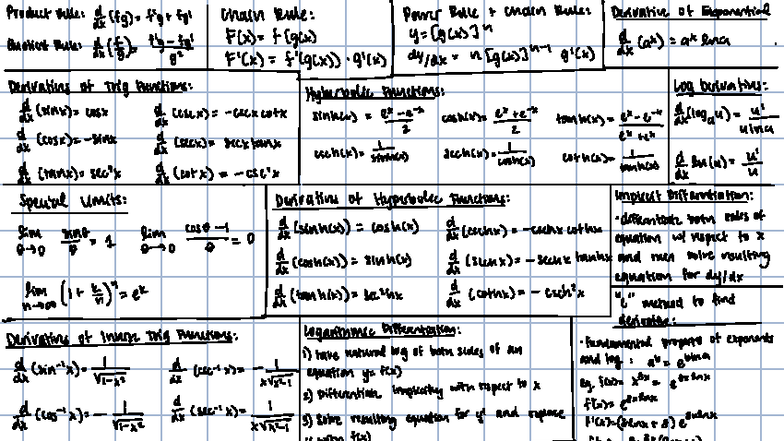 Product Rule: d/dx (fg) = f'g + fg'
Quotient Rule: d/dx (f/g) = f'g - fg' / g²
Chain Rule:
F(x) = f(g(x))
F'(x) = f'(g(x)) · g'(x)
Power Rule + Chain Rule:
y = [g(x)]^n
dy/dx = n [g(x)]^(n-1) g'(x)
Derivative of Exponential
d/dx (a^x) = a^x ln a
Derivatives of Trig Functions:
d/dx (sinx) = cosx
d/dx (cscx) = -cscx cotx
d/dx (cosx) = -sinx
d/dx (secx) = secx tanx
d/dx (tanx) = sec²x
d/dx (cotx) = -csc²x
Hyperbolic Functions:
sinh(x) = e^x - e^-x / 2
cosh(x) = e^x + e^-x / 2
tanh(x) = e^x - e^-x / e^x + e^-x
csch(x) = 1 / sinh(x)
sech(x) = 1 / cosh(x)
coth(x) = 1 / tanh(x)
Log Derivatives:
d/dx (log_a u) = u' / u ln a
d/dx ln(u) = u' / u
Special Limits:
lim θ→0 sinθ / θ = 1
lim θ→0 cosθ - 1 / θ = 0
lim n→∞ (1 + k/n)^n = e^k
Derivatives of Hyperbolic Functions:
d/dx (sinh(x)) = cosh(x)
d/dx (cschx) = -cschx cothx
d/dx (cosh(x)) = sinh(x)
d/dx (sechx) = -sechx tanhx
d/dx (tanh(x)) = sec²hx
d/dx (cothx) = -csch²x
Implicit Differentiation:
· differentiate both sides of
equation w/ respect to x
and then solve resulting
equation for dy/dx
Derivatives of Inverse Trig Functions:
d/dx (sin⁻¹x) = 1 / √(1-x²)
d/dx (csc⁻¹x) = - 1 / x√(x²-1)
d/dx (cos⁻¹x) = - 1 / √(1-x²)
d/dx (sec⁻¹x) = 1 / x√(x²-1)
Logarithmic Differentiation:
1) take natural log of both sides of an
equation y = f(x)
2) Differentiate implicitly with respect to x
3) Solve resulting equation for y' and replace
y with f(x)
"e" method to find
derivative:
· Fundamental property of exponents
and log: a^b = e^(b ln a)
eg. f(x) = x^(8x) = e^(8x lnx)
f(x) = e^(8x lnx)
f'(x) = (8lnx + 8) e^(8x lnx)